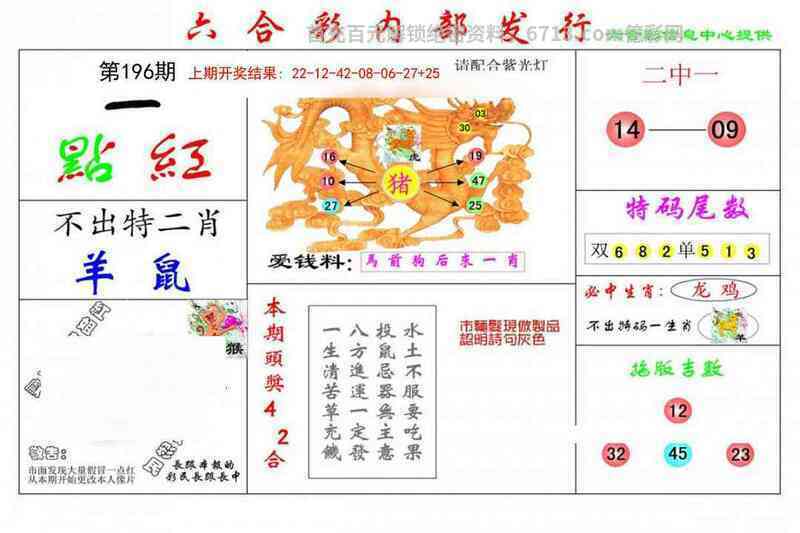 六合彩内部发行
首充百元解锁绝密资料 6713.com德彩网
息中心提供
第196期
上期开奖结果：22-12-42-08-06-27+25
请配合紫光灯
一
點紅
不出特二肖
羊 鼠
03
30
虎
16
19
10
猪
47
27
25
爱钱料：
馬前狗后末一肖
二中一
14
09
特码尾数
双682单513
必中生肖：
龙 鸡
不出特码一生肖
羊
拖版吉数
12
32
45
23
猴
敬告：
市面发现大量假冒一点红
从本期开始更改本人像片
長跟本報的
彩民長跟長中
本期頭獎
4
2合
水土不服要吃果
投鼠忌器無主意
八方進運一定發
一生清苦草充饑
認明詩句灰色